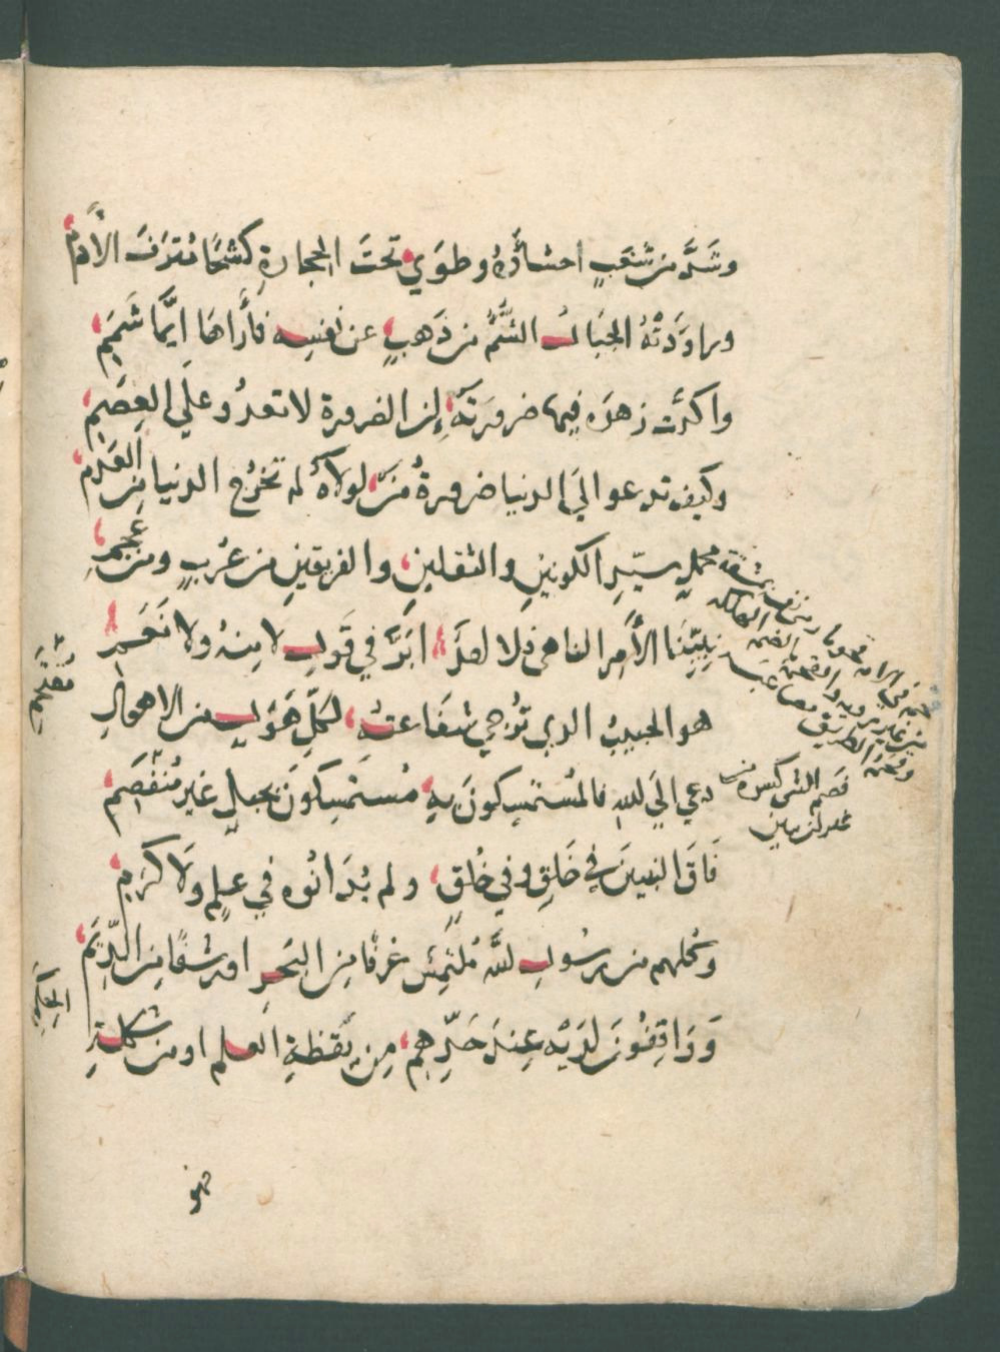 وشَدَّ من سَغَبٍ احشاءَهُ وطوَي تحتَ الحجارةِ كشحًا مُترَفَ الأدَمِ
وراوَدَتْهُ الجبَالُ الشُّمُّ من ذَهبٍ عن نفسِه فأراهَا ايَّما شَمَمِ
واكدَّت زهدَه فيها ضرورَتُهُ إن الضرورة لا تعدُو علَي العِصَمِ
وكيف تدعو الَي الدنيا ضرورةُ مَنْ لولاهُ لم تخرُج الدنيا من العَدَمِ
محمدٍ سيّدِ الكونينِ والثقلينِ والفريقينِ من عُربٍ ومن عجمِ
نبيّنَا الأَمِر الناهي فلا احدٌ ابَرَّ في قَولِ لا منهُ ولا نَعَمِ
هو الحبيبُ الدي تُرجي شفاعتُهُ لكلِّ هَوْلٍ من الاهوالِ
مقتحم
دعي الَي لله فالمُستمسِكونَ بهِ مُستَمسِكونَ بحبلٍ غيرِ مُنفَصِمِ
فَاقَ النبيينَ في خَلقٍ وفي خُلقٍ ولم يُدَانُوه في علمٍ ولَا كَرَمِ
وكلهم من رسُولِ للَّه مُلتَمِسٌ غرفًا من البَحرِ اورشفًا من الدِّيَمِ
وَوَاقِفُونَ لدَيْه عِندَ حَدِّهِمِ مِن يَقظةِ العلم او من شكلةِ
الحكم
فصم الشي كسره من
غير ان يبين